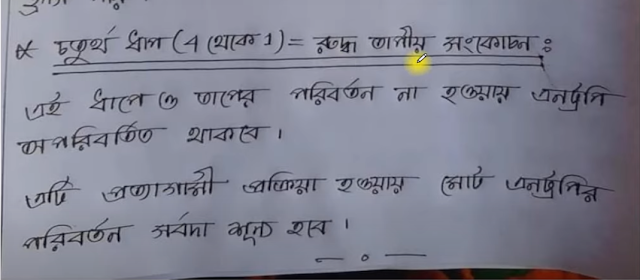 * চতুর্থ ধাপ (4 থেকে 1) = রুদ্ধ তাপীয় সংকোচন :
এই ধাপে ও তাপের পরিবর্তন না হওয়ায় এনট্রপি
অপরিবর্তিত থাকবে ।
এটি প্রত্যাগামী প্রক্রিয়া হওয়ায় মোট এনট্রপির
পরিবর্তন সর্বদা শূন্য হবে ।